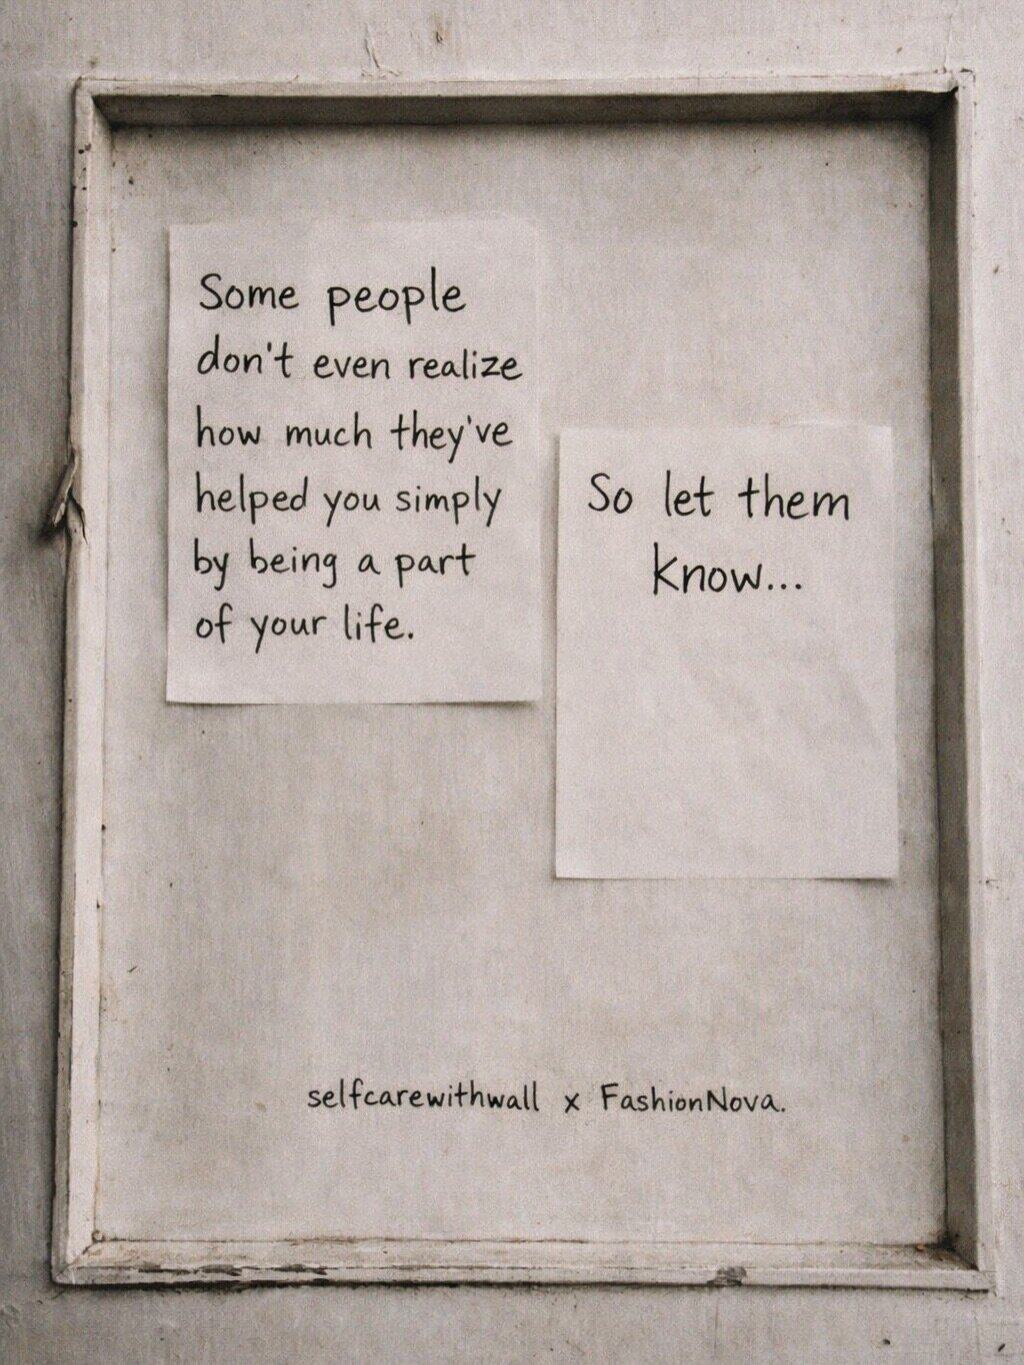 Some people
don't even realize
how much they've
helped you simply
by being a part
of your life.
So let them
know...
selfcarewithwall x FashionNova.